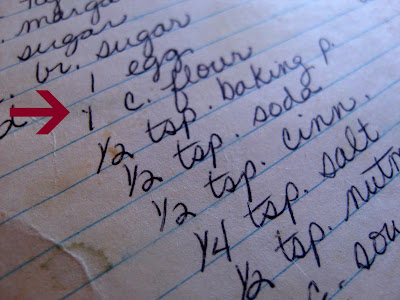 . marga
sugar
. br. sugar
1 egg
1 c. flour
1/2 tsp. baking p.
1/2 tsp. soda
1/2 tsp. cinn.
1/4 tsp. salt
1/2 tsp. nutm
c. sou